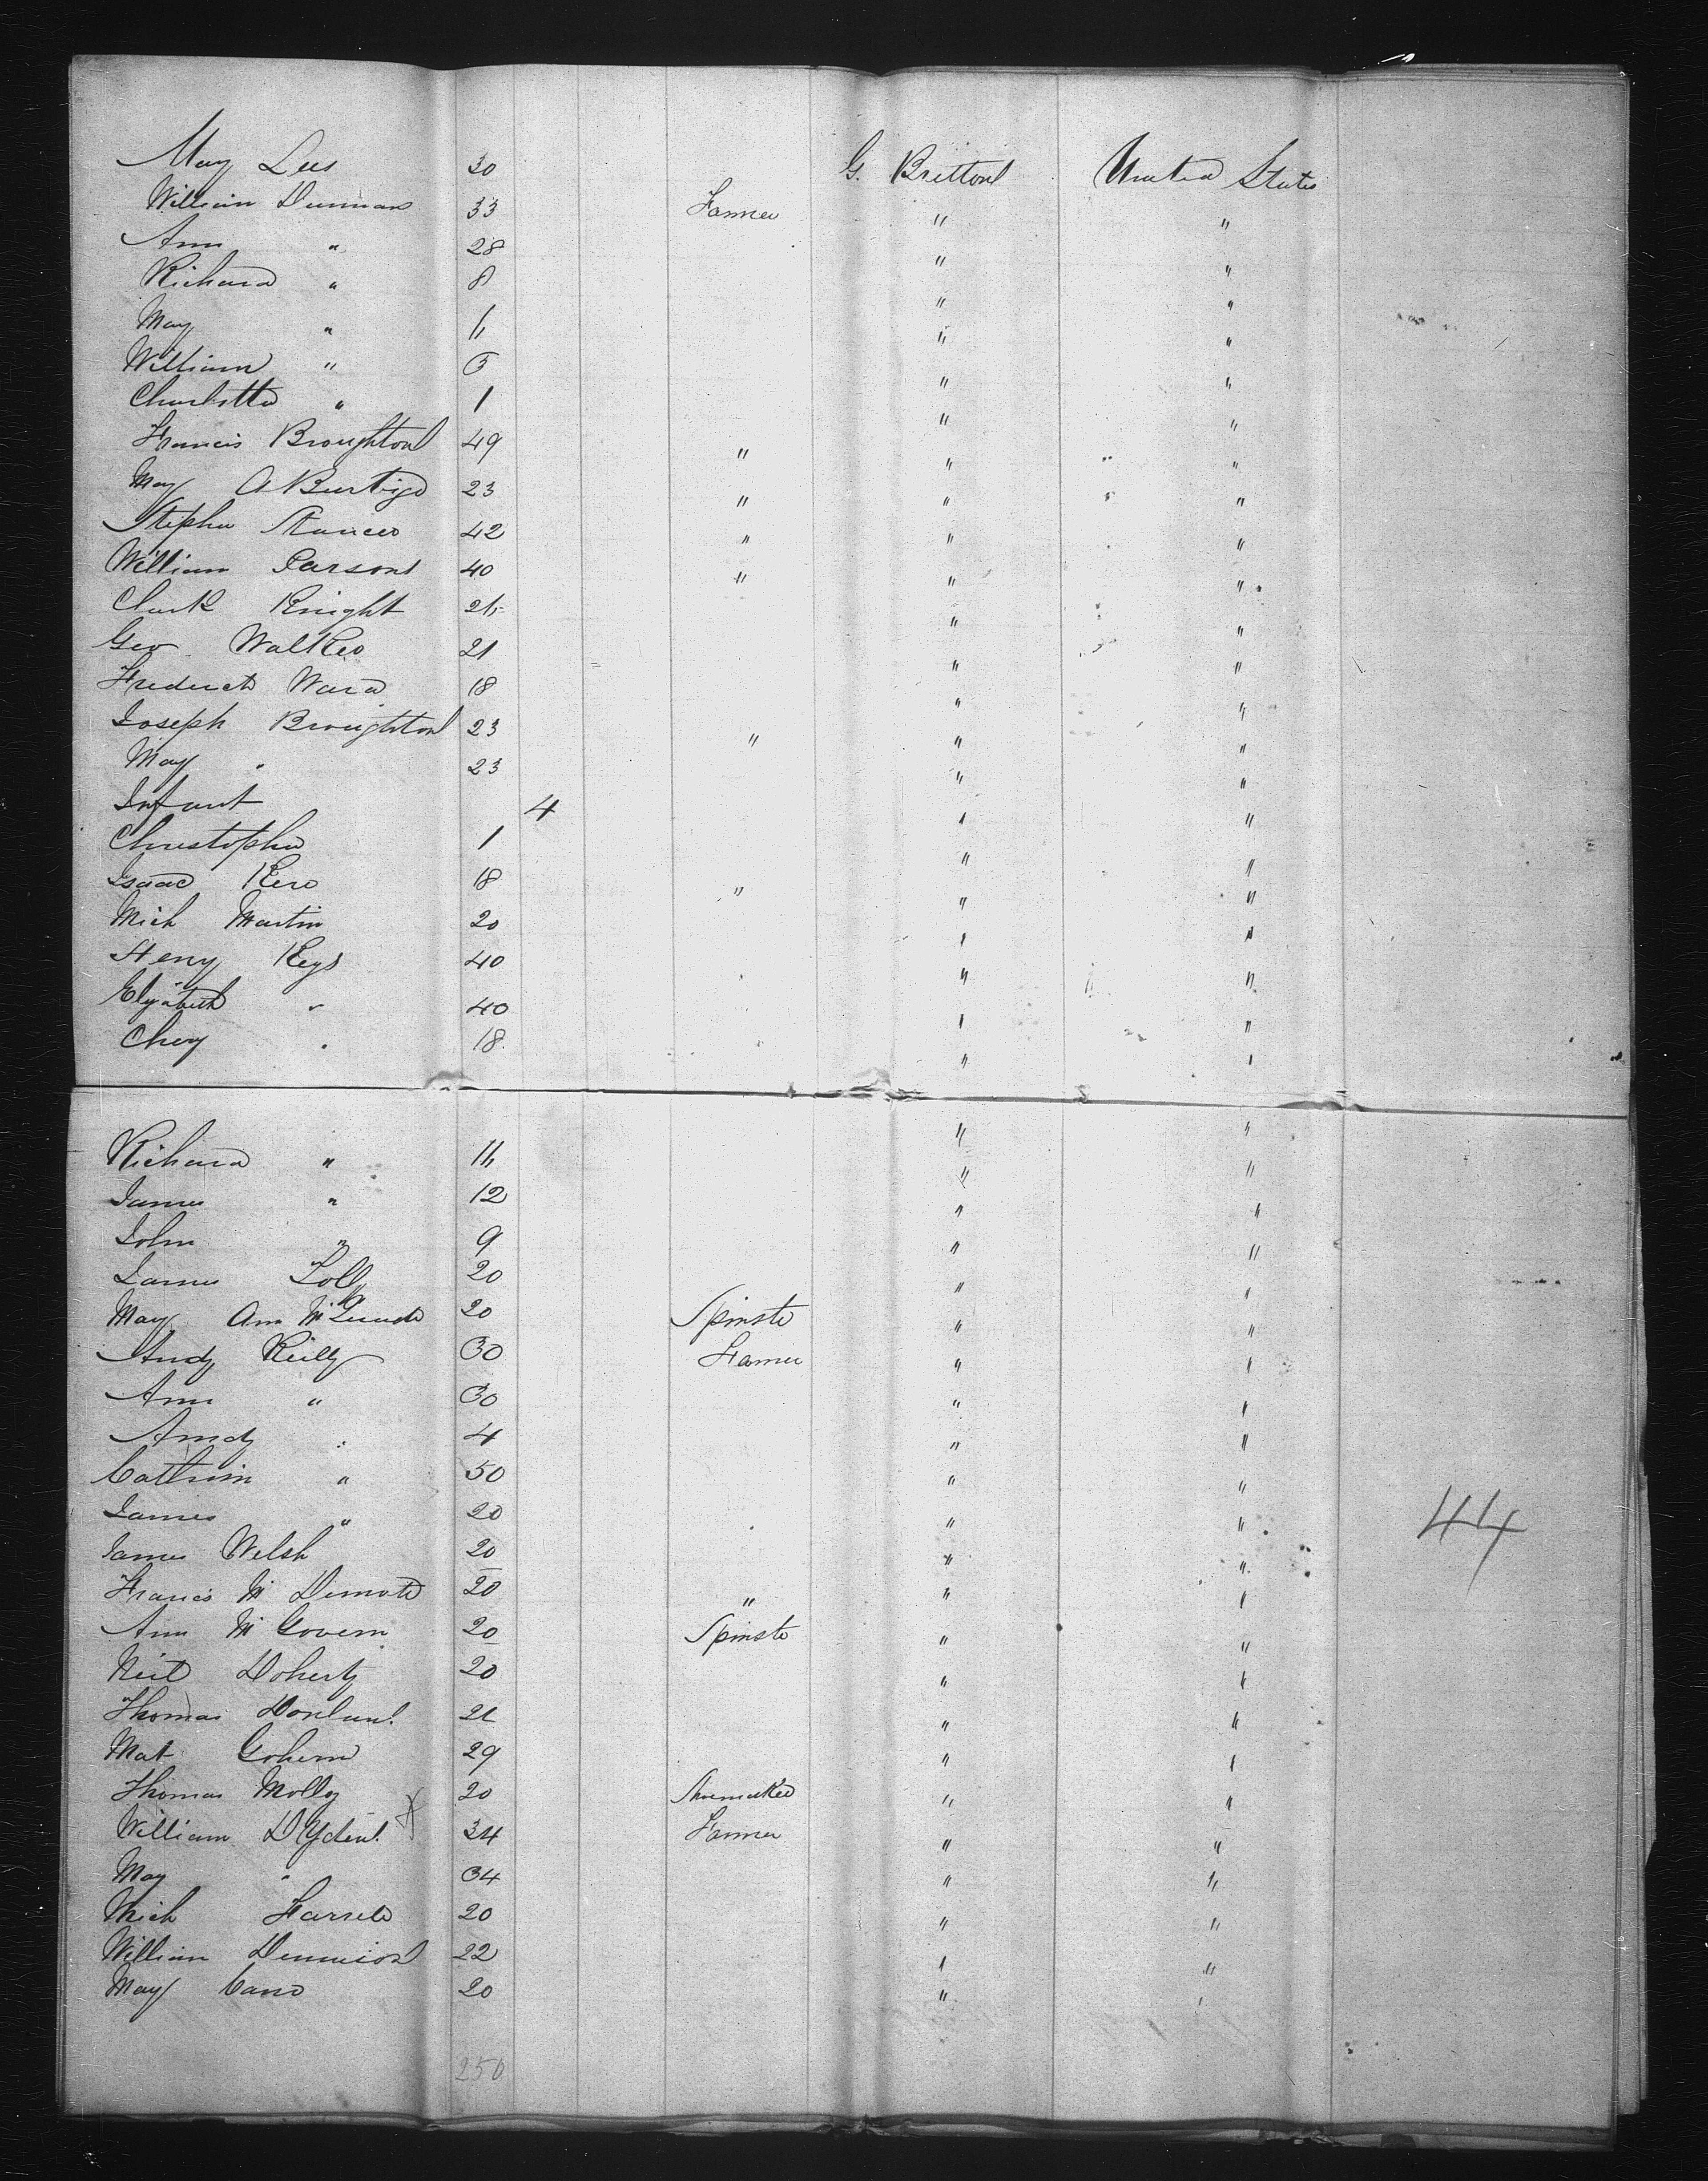 May Lees 30 G. Brittonl United States
William Dunnans 33 Farmer " "
Ann " 28 " "
Richard " 8 " "
May " 11 " "
William " 3 " "
Charlotta " 1 " "
Francis Broughtonl 49 " " "
May A Burtigo 23 " " "
Stephen 42 " " "
William Parsons 40 " " "
Clark Knight 21 " "
Geo Walker 21 " "
Frederick Ward 18 " "
Joseph Broughtonl 23 " " "
May " 23 " "
Infant 4 " "
Christopher 1 " "
Isaac Kero 18 " " "
Mich Martin 20 " "
Henry Keys 40 " "
Elizabeth " 40 " "
Chery " 18 " "
Richard " 11 " "
James " 12 " "
John " 9 " "
James 20 " "
May Ann 20 Spinste " "
Andy Reilly 30 Farmer " "
Ann " 30 " "
Andy " 4 " "
Cathrin " 50 " "
James " 20 " "
James Welsh 20 " "
Francis Mc Dermott 20 " " "
Ann Mc Govern 20 Spinste " "
Neil Doherty 20 " "
Thomas 21 " "
Mat 29 " "
Thomas Molloy 20 Shoemaker " "
William 34 Farmer " "
May " 34 " "
Mich Farrell 20 " "
William Dennison 22 " "
May 20 " "
44
250